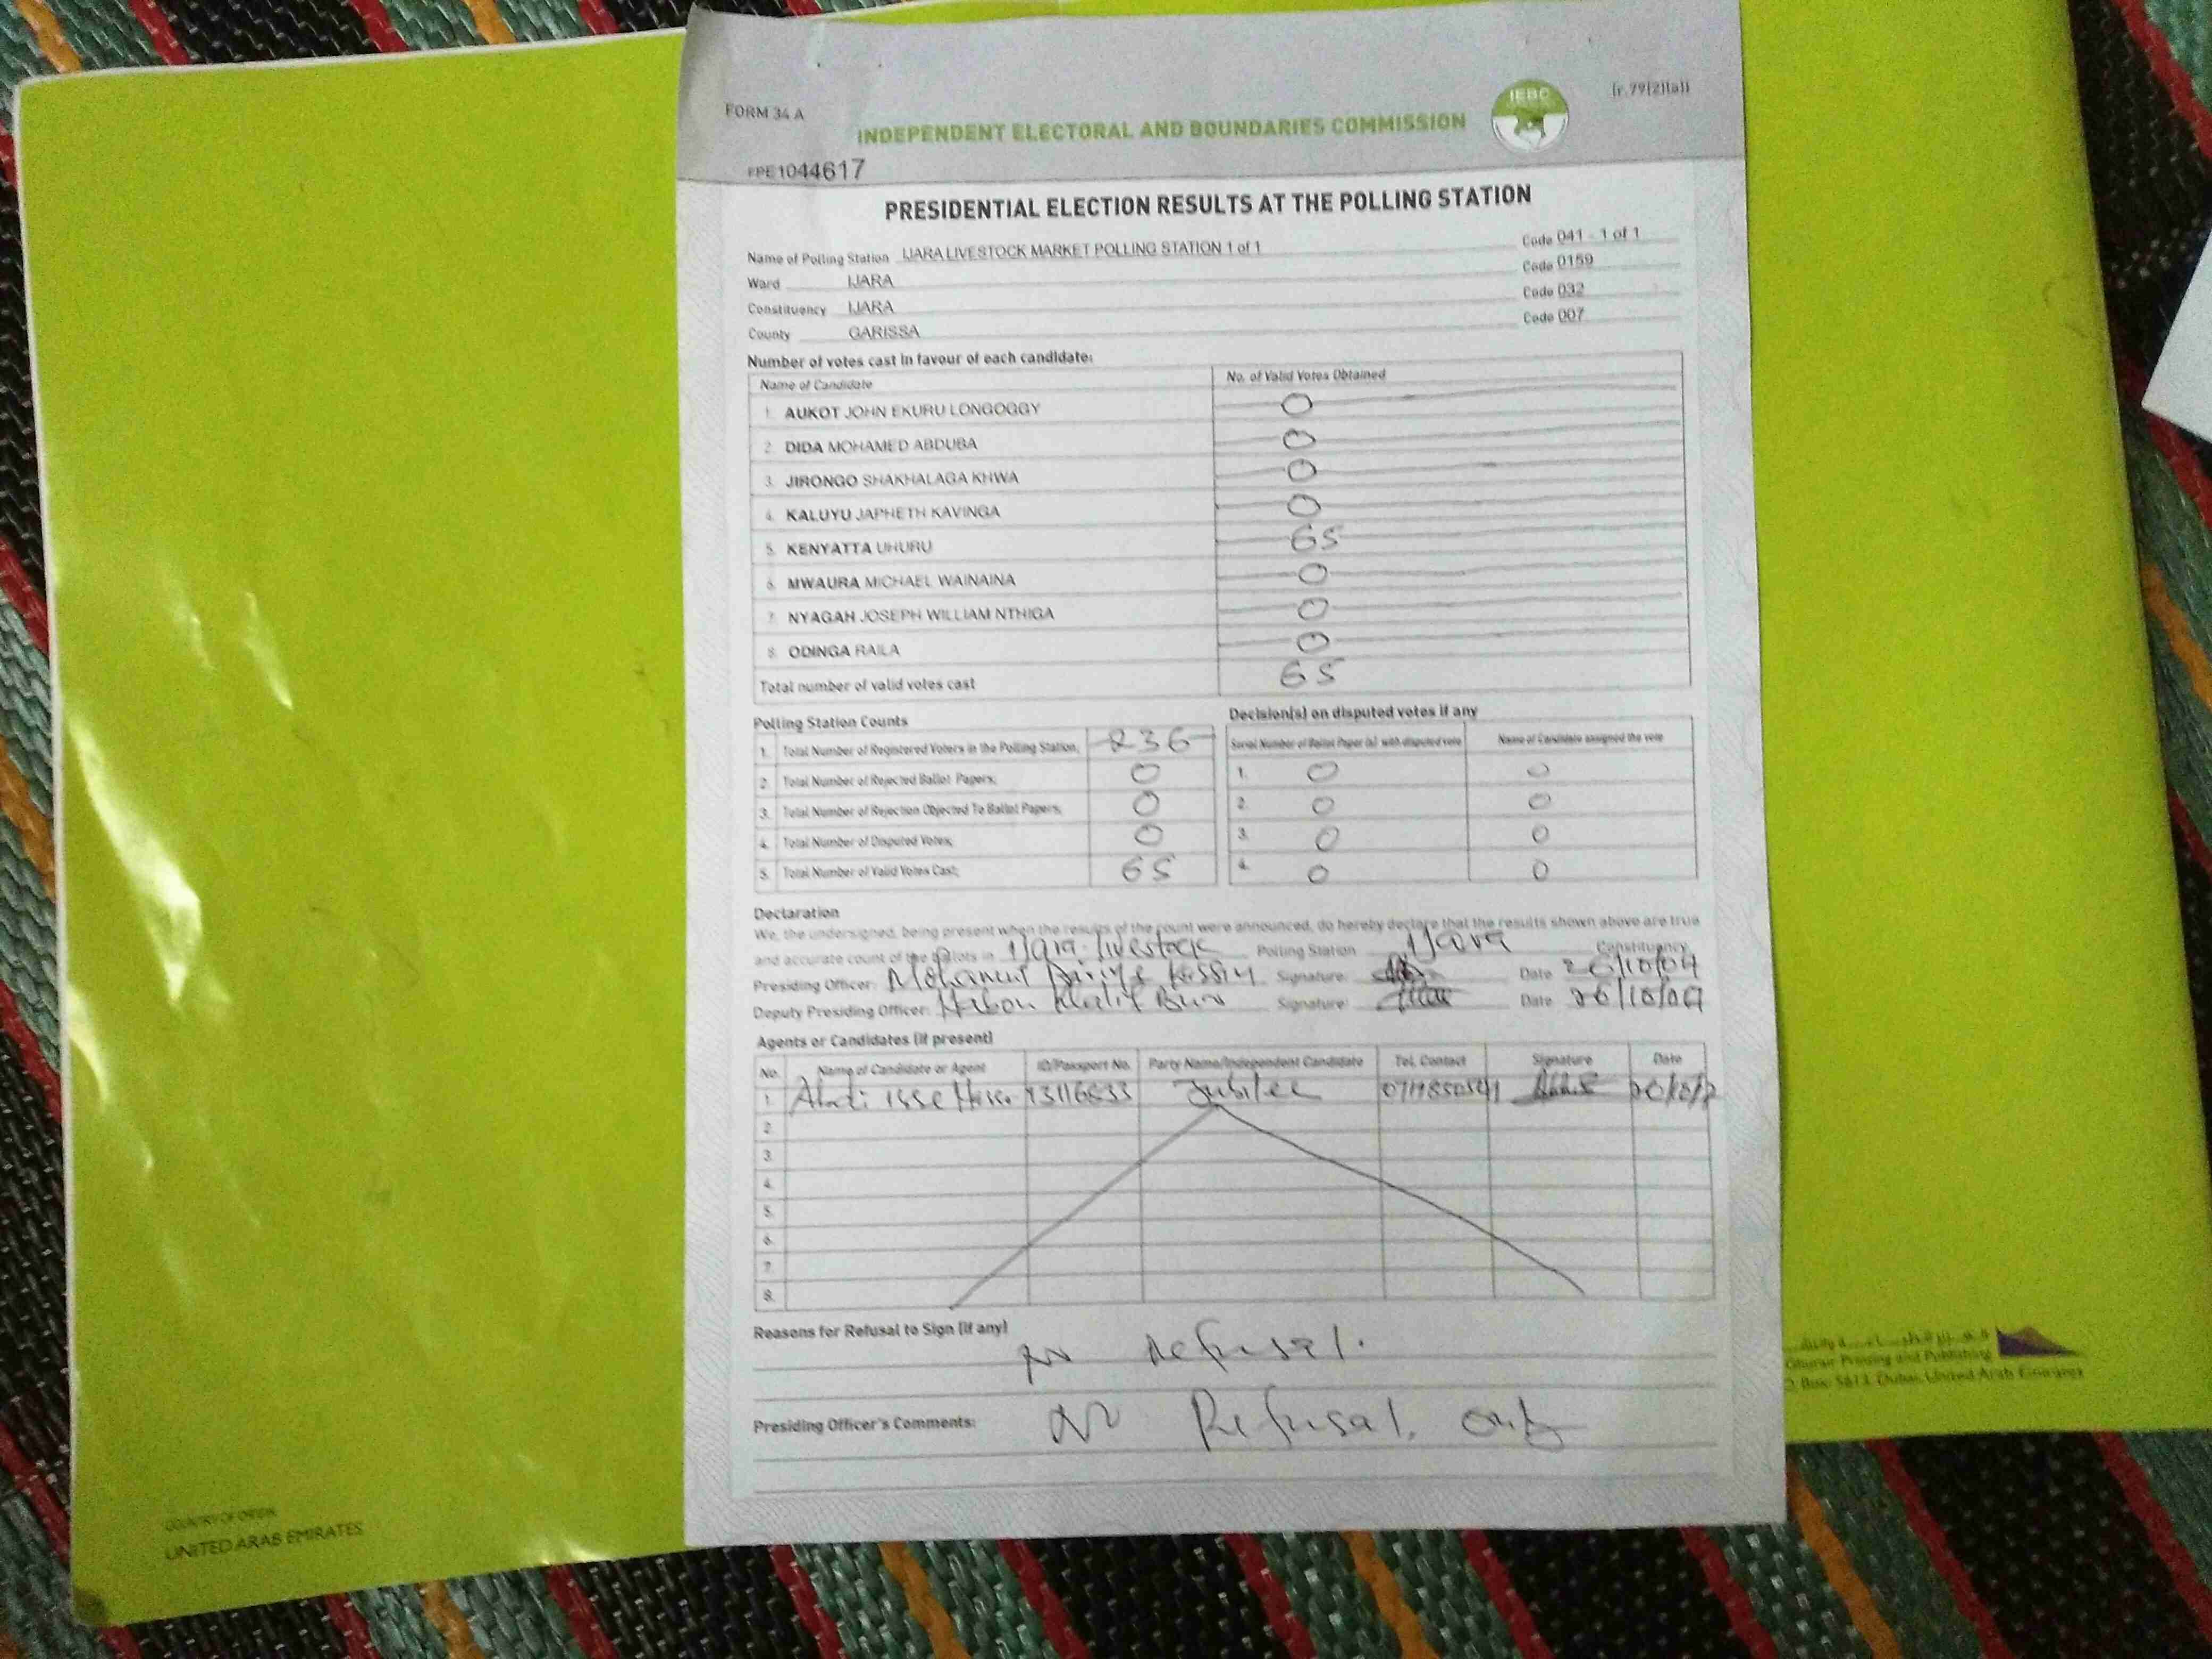 FORM 34 A
(r.79(2)(a))
IEBC
INDEPENDENT ELECTORAL AND BOUNDARIES COMMISSION
PPE1044617
PRESIDENTIAL ELECTION RESULTS AT THE POLLING STATION
Name of Polling Station IJARA LIVESTOCK MARKET POLLING STATION 1 of 1 Code 041 - 1 of 1
Ward IJARA Code 0159
Constituency IJARA Code 032
County GARISSA Code 007
Number of votes cast in favour of each candidate:
Name of Candidate No. of Valid Votes Obtained
1. AUKOT JOHN EKURU LONGOGGY 0
2. DIDA MOHAMED ABDUBA 0
3. JIRONGO SHAKHALAGA KHWA 0
4. KALUYU JAPHETH KAVINGA 0
5. KENYATTA UHURU 65
6. MWAURA MICHAEL WAINAINA 0
7. NYAGAH JOSEPH WILLIAM NTHIGA 0
8. ODINGA RAILA 0
Total number of valid votes cast 65
Polling Station Counts
1. Total Number of Registered Voters in the Polling Station; 236
2. Total Number of Rejected Ballot Papers; 0
3. Total Number of Rejection Objected To Ballot Papers; 0
4. Total Number of Disputed Votes; 0
5. Total Number of Valid Votes Cast; 65
Decision(s) on disputed votes if any
Serial Number of Ballot Paper (s) with disputed vote Name of Candidate assigned the vote
1. 0 0
2. 0 0
3. 0 0
4. 0 0
Declaration
We, the undersigned, being present when the results of the count were announced, do hereby declare that the results shown above are true
and accurate count of the ballots in Ijara livestock Polling Station Ijara Constituency
Presiding Officer: Mohamed Kassim Signature: Date
Deputy Presiding Officer: Khalif Signature: Date 26/10/
Agents or Candidates (if present)
No. Name of Candidate or Agent ID/Passport No. Party Name/Independent Candidate Tel. Contact Signature Date
1. Abdi isse Jubilee
2.
3.
4.
5.
6.
7.
8.
Reasons for Refusal to Sign (if any)
No Refusal.
Presiding Officer's Comments: No Refusal. only
COUNTRY OF ORIGIN
UNITED ARAB EMIRATES
Printing and Publishing
Box: 5613, Dubai, United Arab Emirates